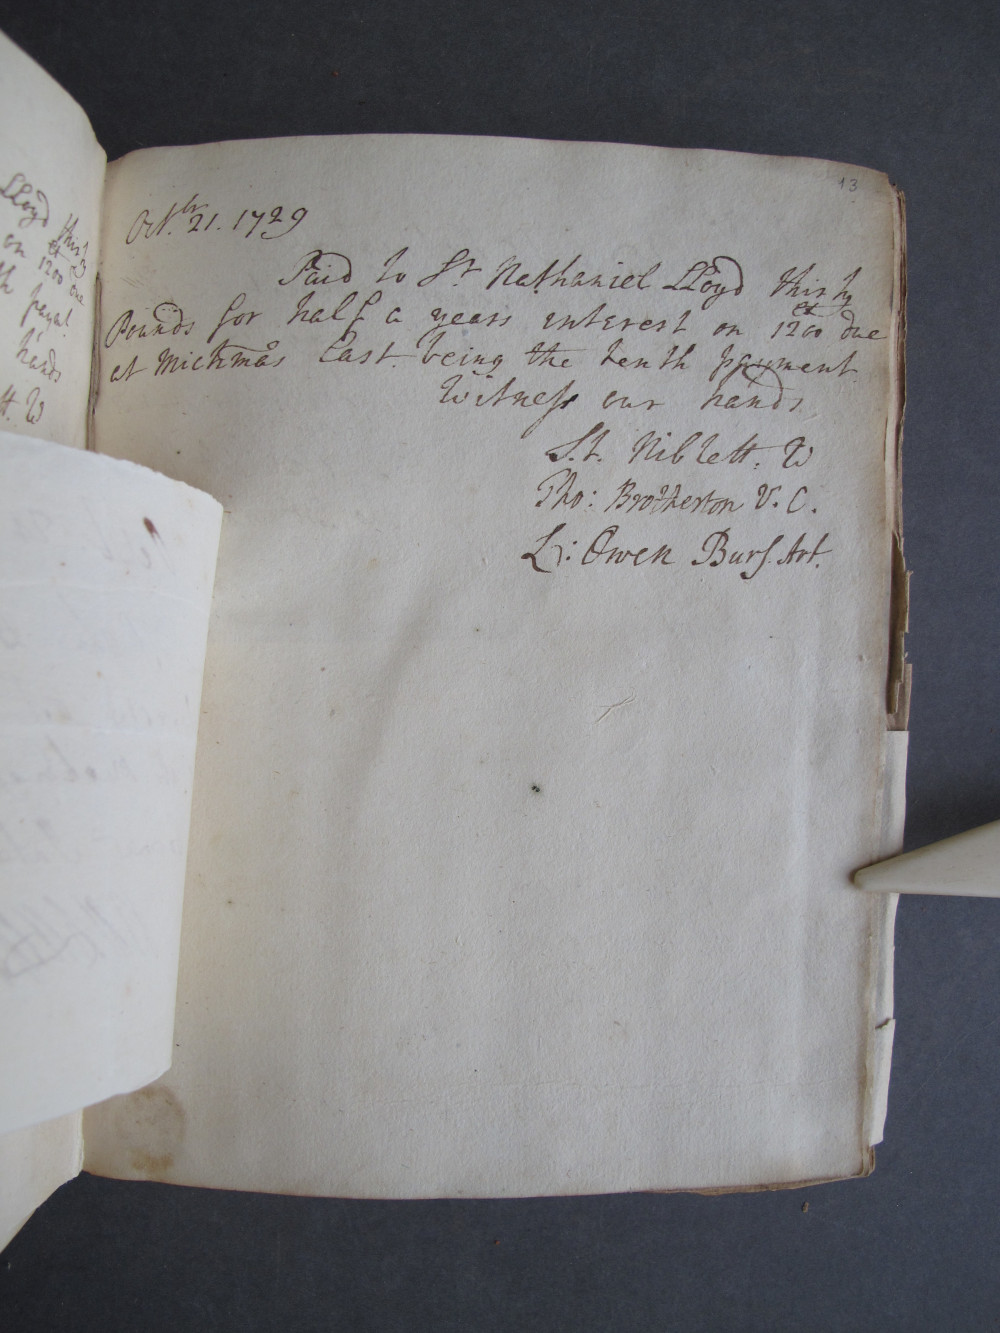 Lloyd thirty
on 1200 due
payal.
hands
tt. W
13
Octbr. 21. 1729
Paid to Sr. Nathaniel Lloyd thirty
Pounds for half a years interest on 1200 due
at Michmas Last. being the tenth payment.
Witness our hands
St. Niblett. W
Tho: Brotherton V. C.
L: Owen Burs. Art.